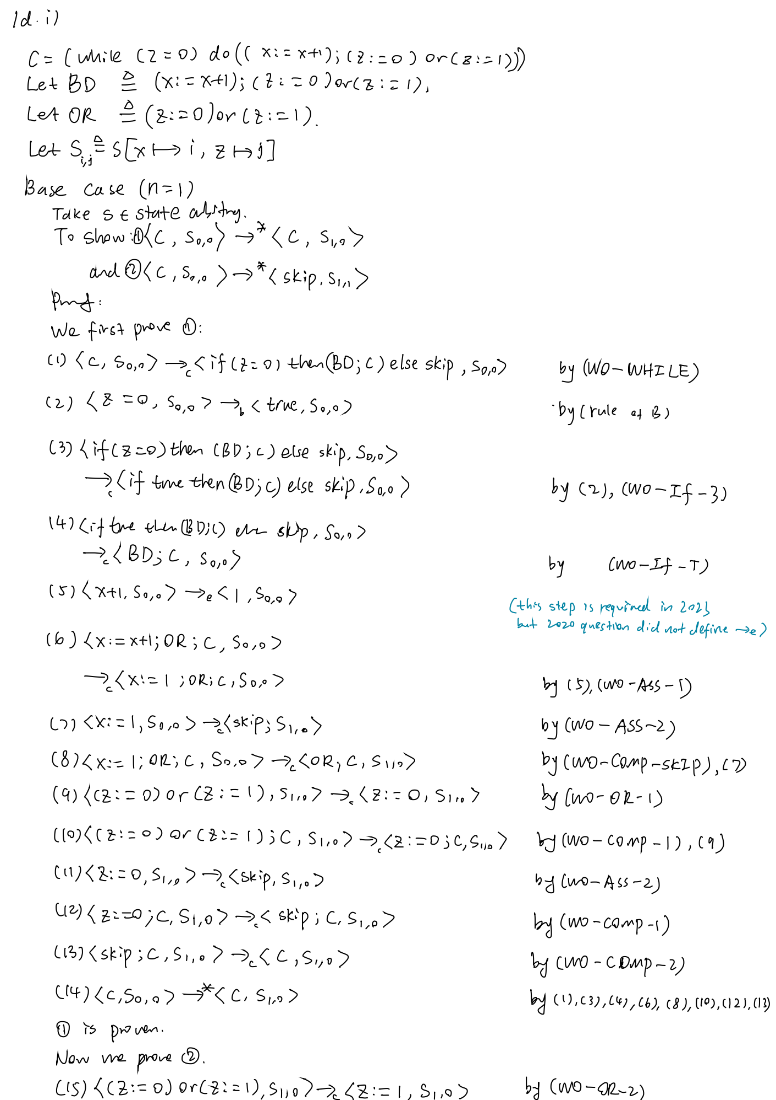 1d.i)
C = (while (z=0) do(( x:= x+1); (z:=0) or(z:=1)))
Let BD ≜ (x:=x+1); (z:=0) or(z:=1),
Let OR ≜ (z:=0) or (z:=1).
Let S_{i,j} ≜ S[x ↦ i, z ↦ j]
Base case (n=1)
Take s ∈ state
To show: ①⟨C, S_{0,0}⟩ →* ⟨C, S_{1,0}⟩
and ②⟨C, S_{0,0}⟩ →* ⟨skip, S_{1,1}⟩
Proof:
We first prove ①:
(1) ⟨C, S_{0,0}⟩ →_c ⟨if (z=0) then(BD; C) else skip, S_{0,0}⟩ by (WO-WHILE)
(2) ⟨z = 0, S_{0,0}⟩ →_b ⟨true, S_{0,0}⟩ by (rule of B)
(3) ⟨if(z=0) then (BD; C) else skip, S_{0,0}⟩
→_c ⟨if true then(BD; C) else skip, S_{0,0}⟩ by (2), (WO-If-3)
(4) ⟨if true then(BD;C) else skip, S_{0,0}⟩
→_c ⟨BD; C, S_{0,0}⟩ by (WO-If-T)
(5) ⟨x+1, S_{0,0}⟩ →_e ⟨1, S_{0,0}⟩ (this step is required in 2021
but 2020 question did not define →e)
(6) ⟨x:=x+1; OR; C, S_{0,0}⟩
→_c ⟨x:=1; OR; C, S_{0,0}⟩ by (5), (WO-Ass-1)
(7) ⟨x:=1, S_{0,0}⟩ →_c ⟨skip; S_{1,0}⟩ by (WO-ASS-2)
(8) ⟨x:=1; OR; C, S_{0,0}⟩ →_c ⟨OR; C, S_{1,0}⟩ by (WO-Comp-SKIP), (7)
(9) ⟨(z:=0) or (z:=1), S_{1,0}⟩ →_c ⟨z:=0, S_{1,0}⟩ by (WO-OR-1)
(10) ⟨(z:=0) or (z:=1); C, S_{1,0}⟩ →_c ⟨z:=0; C, S_{1,0}⟩ by (WO-COMP-1), (9)
(11) ⟨z:=0, S_{1,0}⟩ →_c ⟨skip, S_{1,0}⟩ by (WO-Ass-2)
(12) ⟨z:=0; C, S_{1,0}⟩ →_c ⟨skip; C, S_{1,0}⟩ by (WO-comp-1)
(13) ⟨skip; C, S_{1,0}⟩ →_c ⟨C, S_{1,0}⟩ by (WO-COMP-2)
(14) ⟨C, S_{0,0}⟩ →* ⟨C, S_{1,0}⟩ by (1), (3), (4), (6), (8), (10), (12), (13
① is proven.
Now we prove ②.
(15) ⟨(z:=0) or(z:=1), S_{1,0}⟩ →_c ⟨z:=1, S_{1,0}⟩ by (WO-OR-2)